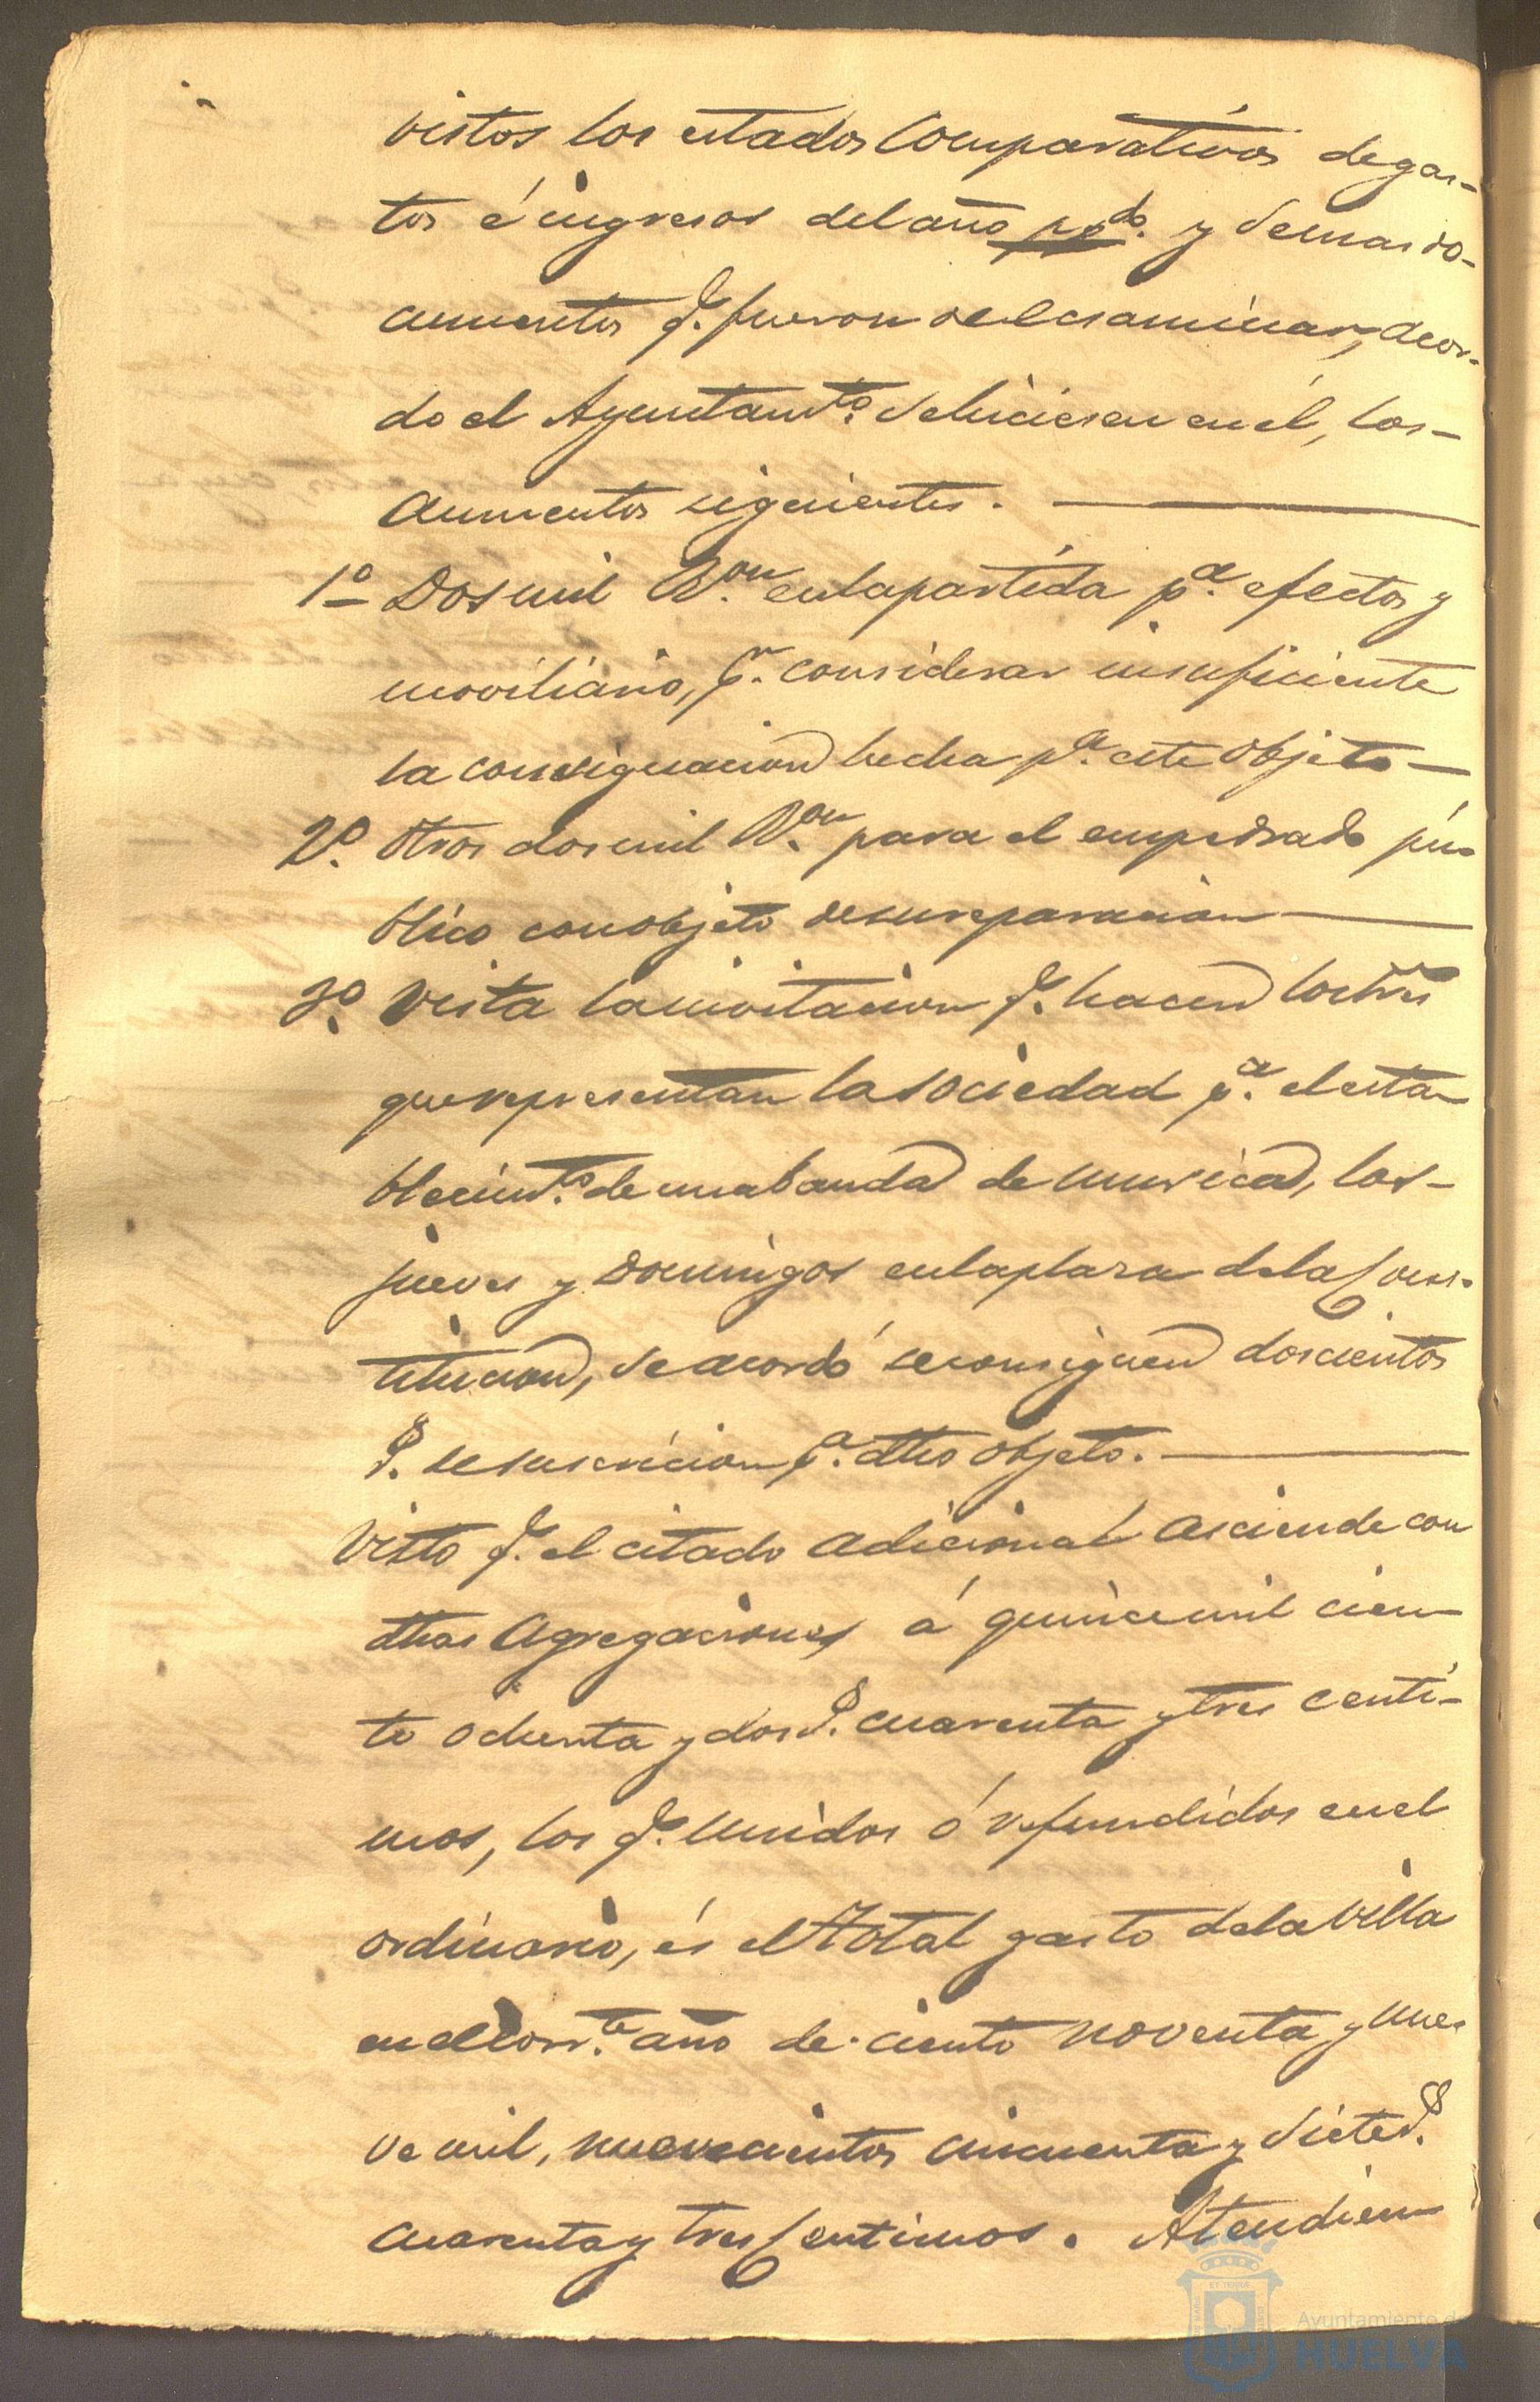 vistos los estados Comparativos de gas-
tos é ingresos del año ppdo. y demas do-
cumentos q. fueron de ecsaminar, acor-
do el Ayuntamto. se hiciesen en él, los-
aumentos siguientes.
1o Dos mil Ron. en la partida pa. efectos y
moviliario, pr. considerar insuficiente
la consignacion hecha pa. este objeto
2o. Otros dos mil Ron. para el empedrado pú-
blico con objeto de su reparacion
3o. Vista la invitacion q. hacen los tres
que representan la sociedad pa. el esta
blecimto. de una banda de musica, los-
jueves y Domingos en la plaza de la Cons-
titucion, se acordó se consignen doscientos
rs. de suscricion pa. dho objeto.
Visto q. el citado adicional asciende con
dhas agregaciones á quince mil cien
to ochenta y dos rs. cuarenta y tres centi-
mos, los q. unidos ó refundidos en el
ordinario, és el total gasto de la villa
en el corrte. año de ciento noventa y nue-
ve mil, nuevecientos cincuenta y siete rs.
cuarenta y tres Centimos. Atendien
Ayuntamiento de
HUELVA